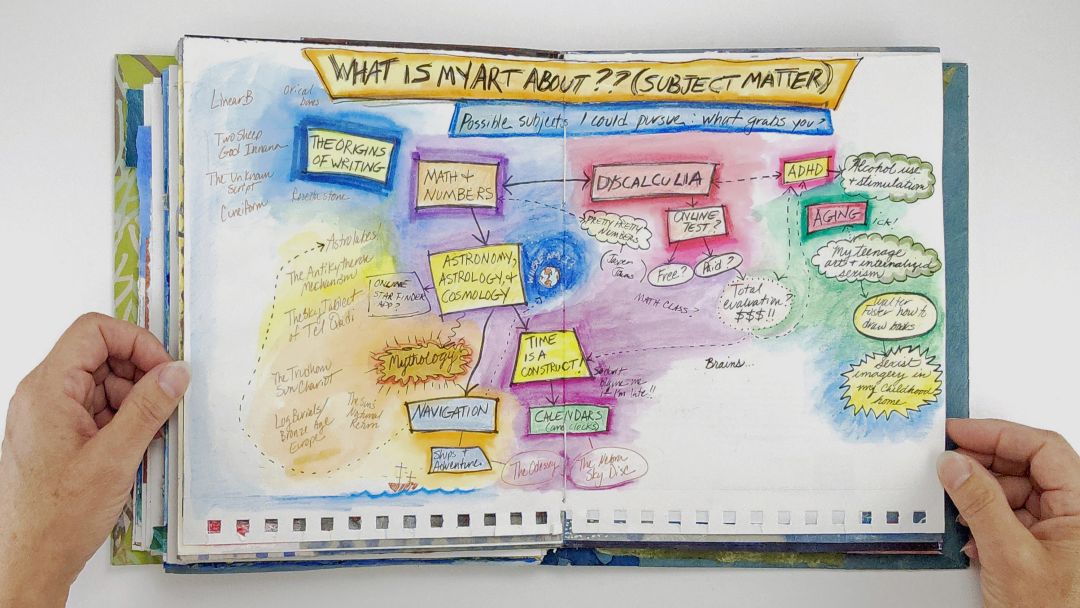 WHAT IS MY ART ABOUT?? (SUBJECT MATTER)
Possible subjects I could pursue: what grabs you?
Linear B
THE ORIGINS
OF WRITING
Two Sheep
God Innana
The Unknown
Script
Cuneiform
MATH +
NUMBERS
DYSCALCULIA
ADHD
Alcohol use
+ stimulation
AGING
ick!
ONLINE
TEST?
PRETTY PRETTY
NUMBERS
Free?
Paid?
My teenage
art + internalized
sexism
Astrolabes!
The Antikythera
Mechanism
ASTRONOMY,
ASTROLOGY, +
COSMOLOGY
ONLINE
STAR FINDER
APP?
MATH CLASS?
Total
evaluation?
$$$!!
Walter
Foster how to
draw books
The Sky Tablet
of Tel
Mythology
TIME
IS A
CONSTRUCT!
Brains...
Sexist
imagery in
my childhood
home
blame me
if I'm late!!
The Trundholm
Sun Chariot
NAVIGATION
CALENDARS
(and clocks)
Log Burials
Bronze Age
Europe
The Sun's
Return
Ships +
Adventure
The Odyssey
The Nebra
Sky Disc